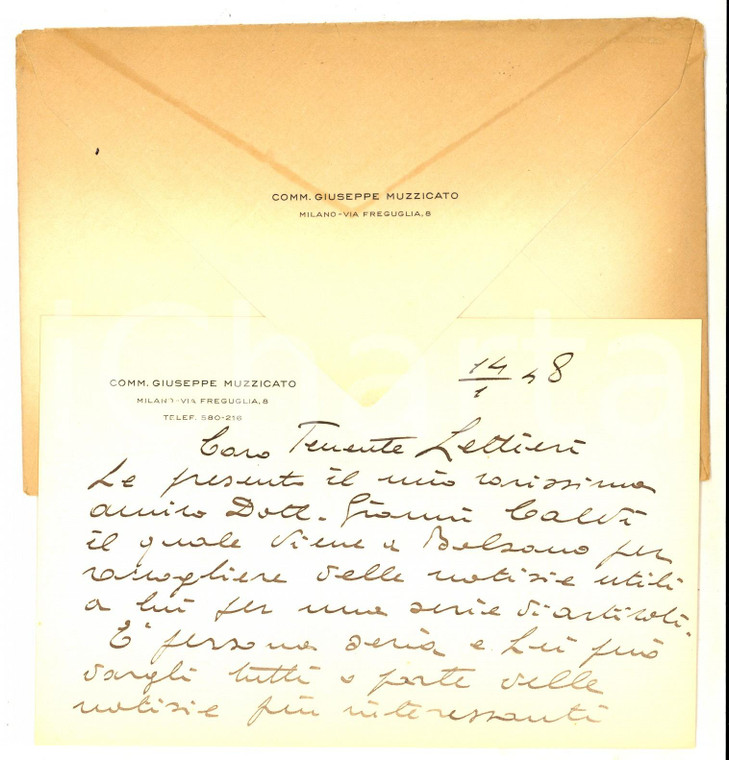 COMM. GIUSEPPE MUZZICATO
MILANO-VIA FREGUGLIA, 8
COMM. GIUSEPPE MUZZICATO
MILANO-VIA FREGUGLIA, 8
TELEF. 580-218
14/1 48
Caro Tenente Lettieri
Le presento il mio carissimo
amico Dott. Gianni Calvi
il quale viene a Bolzano per
raccogliere delle notizie utili
a lui per una serie di articoli.
E' persona seria e Lei può
dargli tutti o parte delle
notizie più interessanti